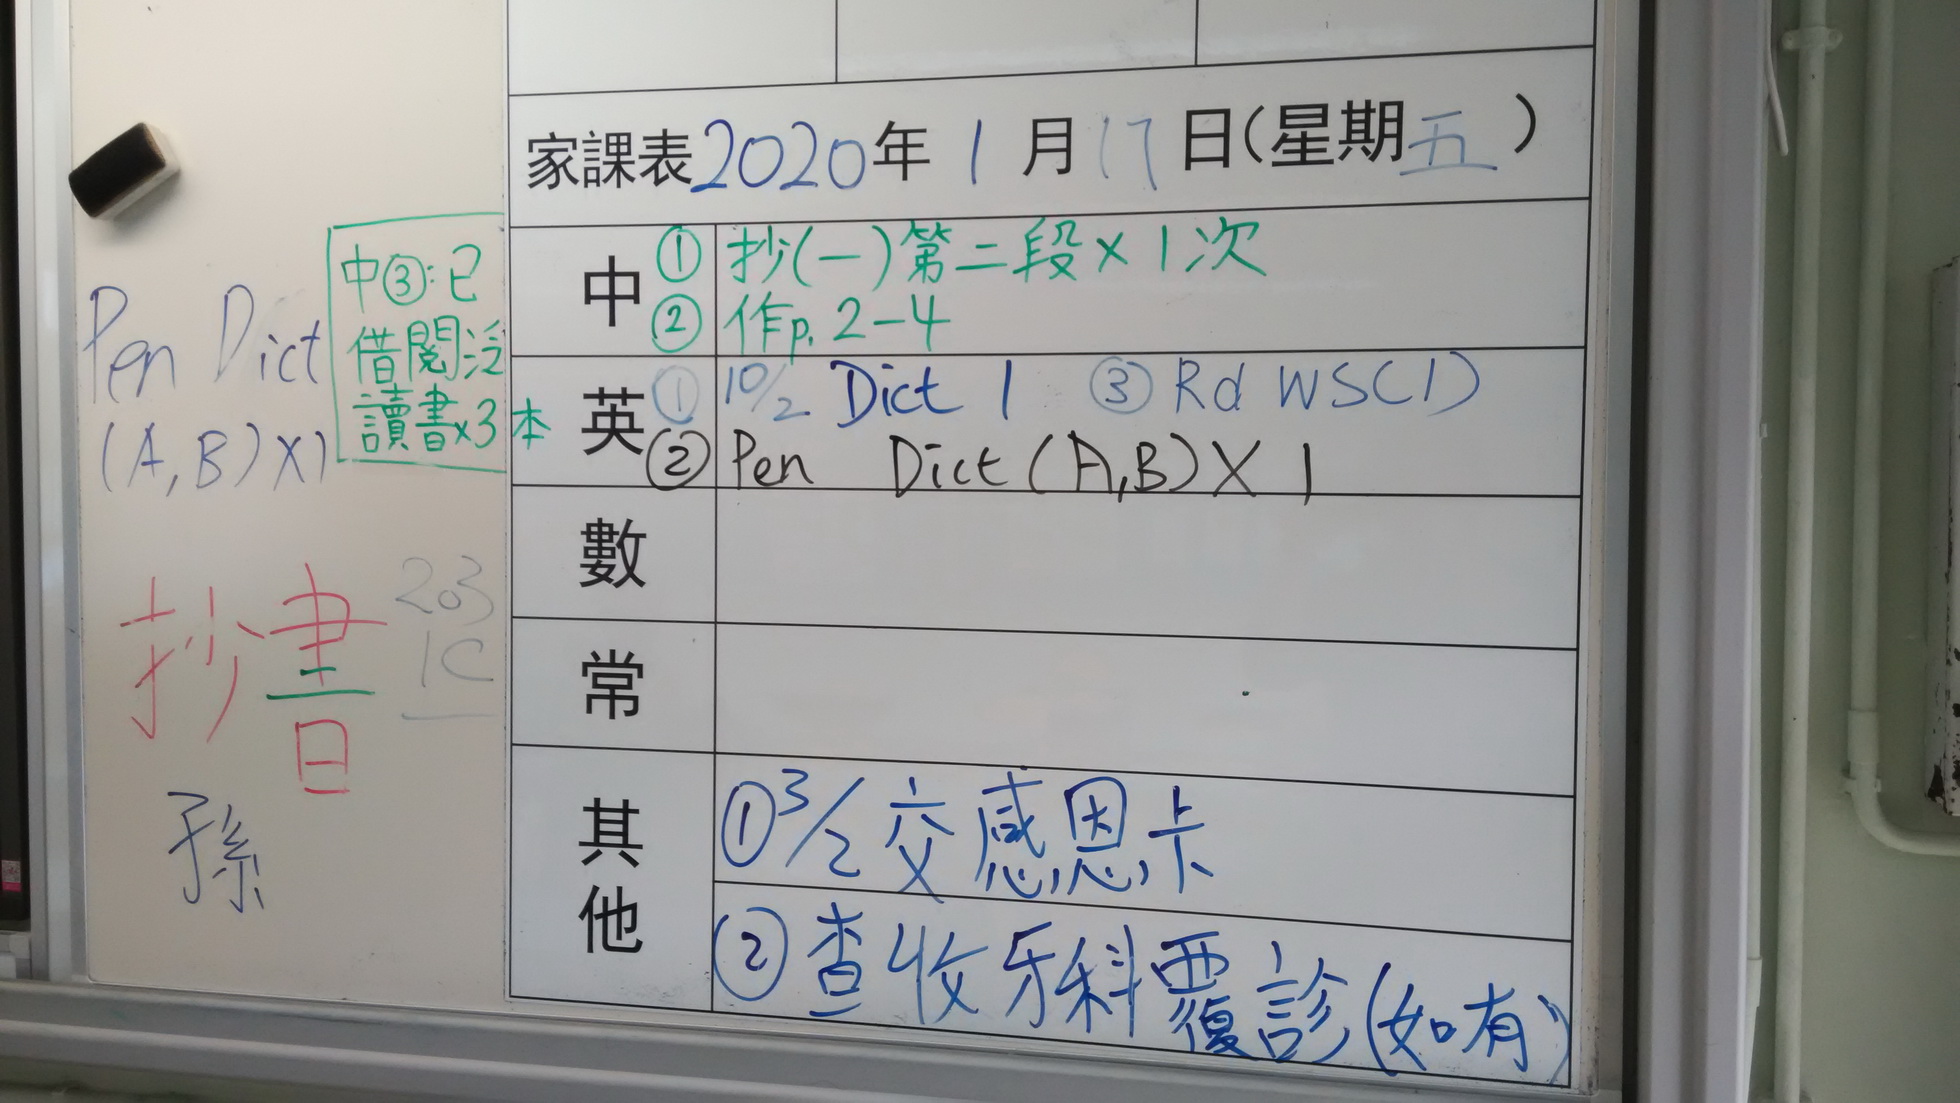 家課表2020年1月17日(星期五)
中 ① 抄(一)第二段×1次
② 作p. 2-4
英 ① 10/2 Dict 1 ③ Rd WS(1)
② Pen Dict (A,B) X 1
數
常
其他
① 3/2 交感恩卡
② 查收牙科覆診(如有)
中③:已
借閱泛
讀書x3本
Pen Dict
(A,B)X1
抄書
203
1C
孫